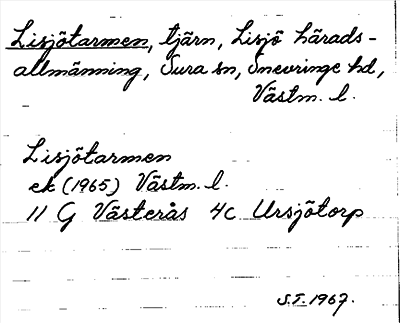 Lisjötarmen, tjärn, Lisjö härads-
allmänning, Sura sn, Snevringe hd,
Västm. l.
Lisjötarmen
ek (1965) Västm. l.
11 G Västerås 4c Ursjötorp
S.T. 1967.